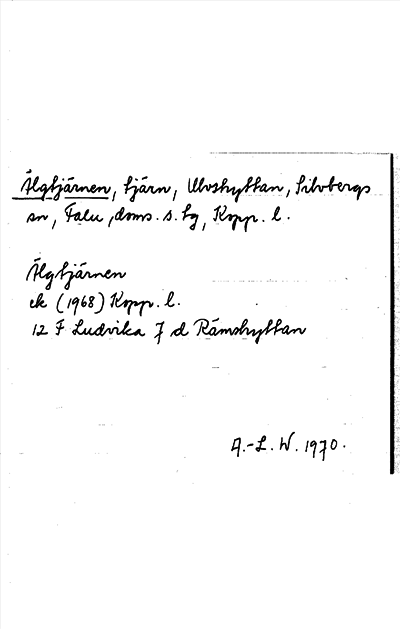 Älgtjärnen, tjärn, Ulvshyttan, Silvbergs
sn, Falu doms. s. tg, Kopp. l.
Älgtjärnen
ek (1968) Kopp. l.
12 F Ludvika 7 d Rämshyttan
A.-L. W. 1970.